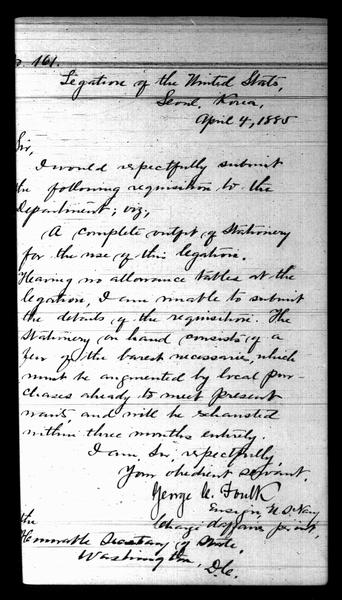 No. 161.
Legation of the United States,
Seoul, Korea,
April 4, 1885
Sir,
I would respectfully submit
the following requisition to the
Department; viz,
A complete outfit of Stationery
for the use of this legation.
Having no allowance tables at the
legation, I am unable to submit
the details of the requisition. The
Stationery on hand consists of a
few of the barest necessaries, which
must be augmented by local pur-
chases already to meet present
wants, and will be exhausted
within three months entirely.
I am, Sir, respectfully,
Your obedient servant.
George C. Foulk
Ensign, U.S. Navy
Chargé d'affaires
the
Honorable Secretary of State,
Washington,
D.C.